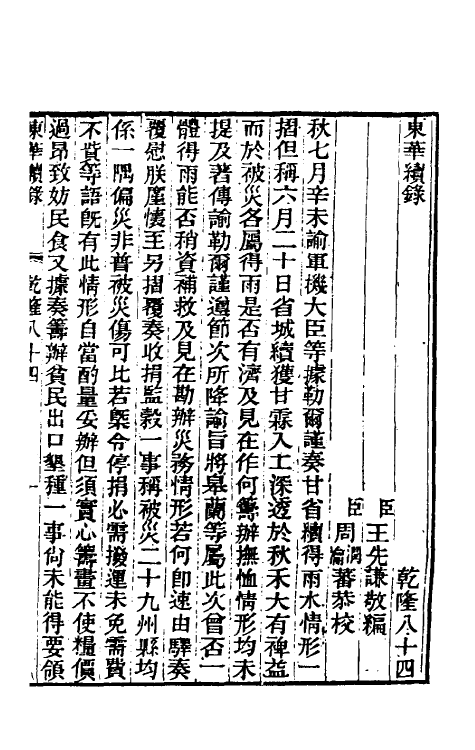 東華續錄
乾隆八十四
臣王先謙敬編
臣周潤蕃周瀹蕃恭校
秋七月辛未諭軍機大臣等據勒爾謹奏甘省續得雨水情形一
摺但稱六月二十日省城續獲甘霖入土深透於秋禾大有裨益
而於被災各屬得雨是否有濟及見在作何籌辦撫恤情形均未
提及著傳諭勒爾謹遵節次所降諭旨將皋蘭等屬此次曾否一
體得雨能否稍資補救及見在勘辦災務情形若何卽速由驛奏
覆慰朕廑懷至另摺覆奏收捐監穀一事稱被災二十九州縣均
係一隅偏災非普被災傷可比若槩令停捐必需撥運未免需費
不貲等語旣有此情形自當酌量妥辦但須實心籌畫不使糧價
過昂致妨民食又據奏籌辦貧民出口墾種一事尙未能得要領
東華續錄 乾隆八十四 一